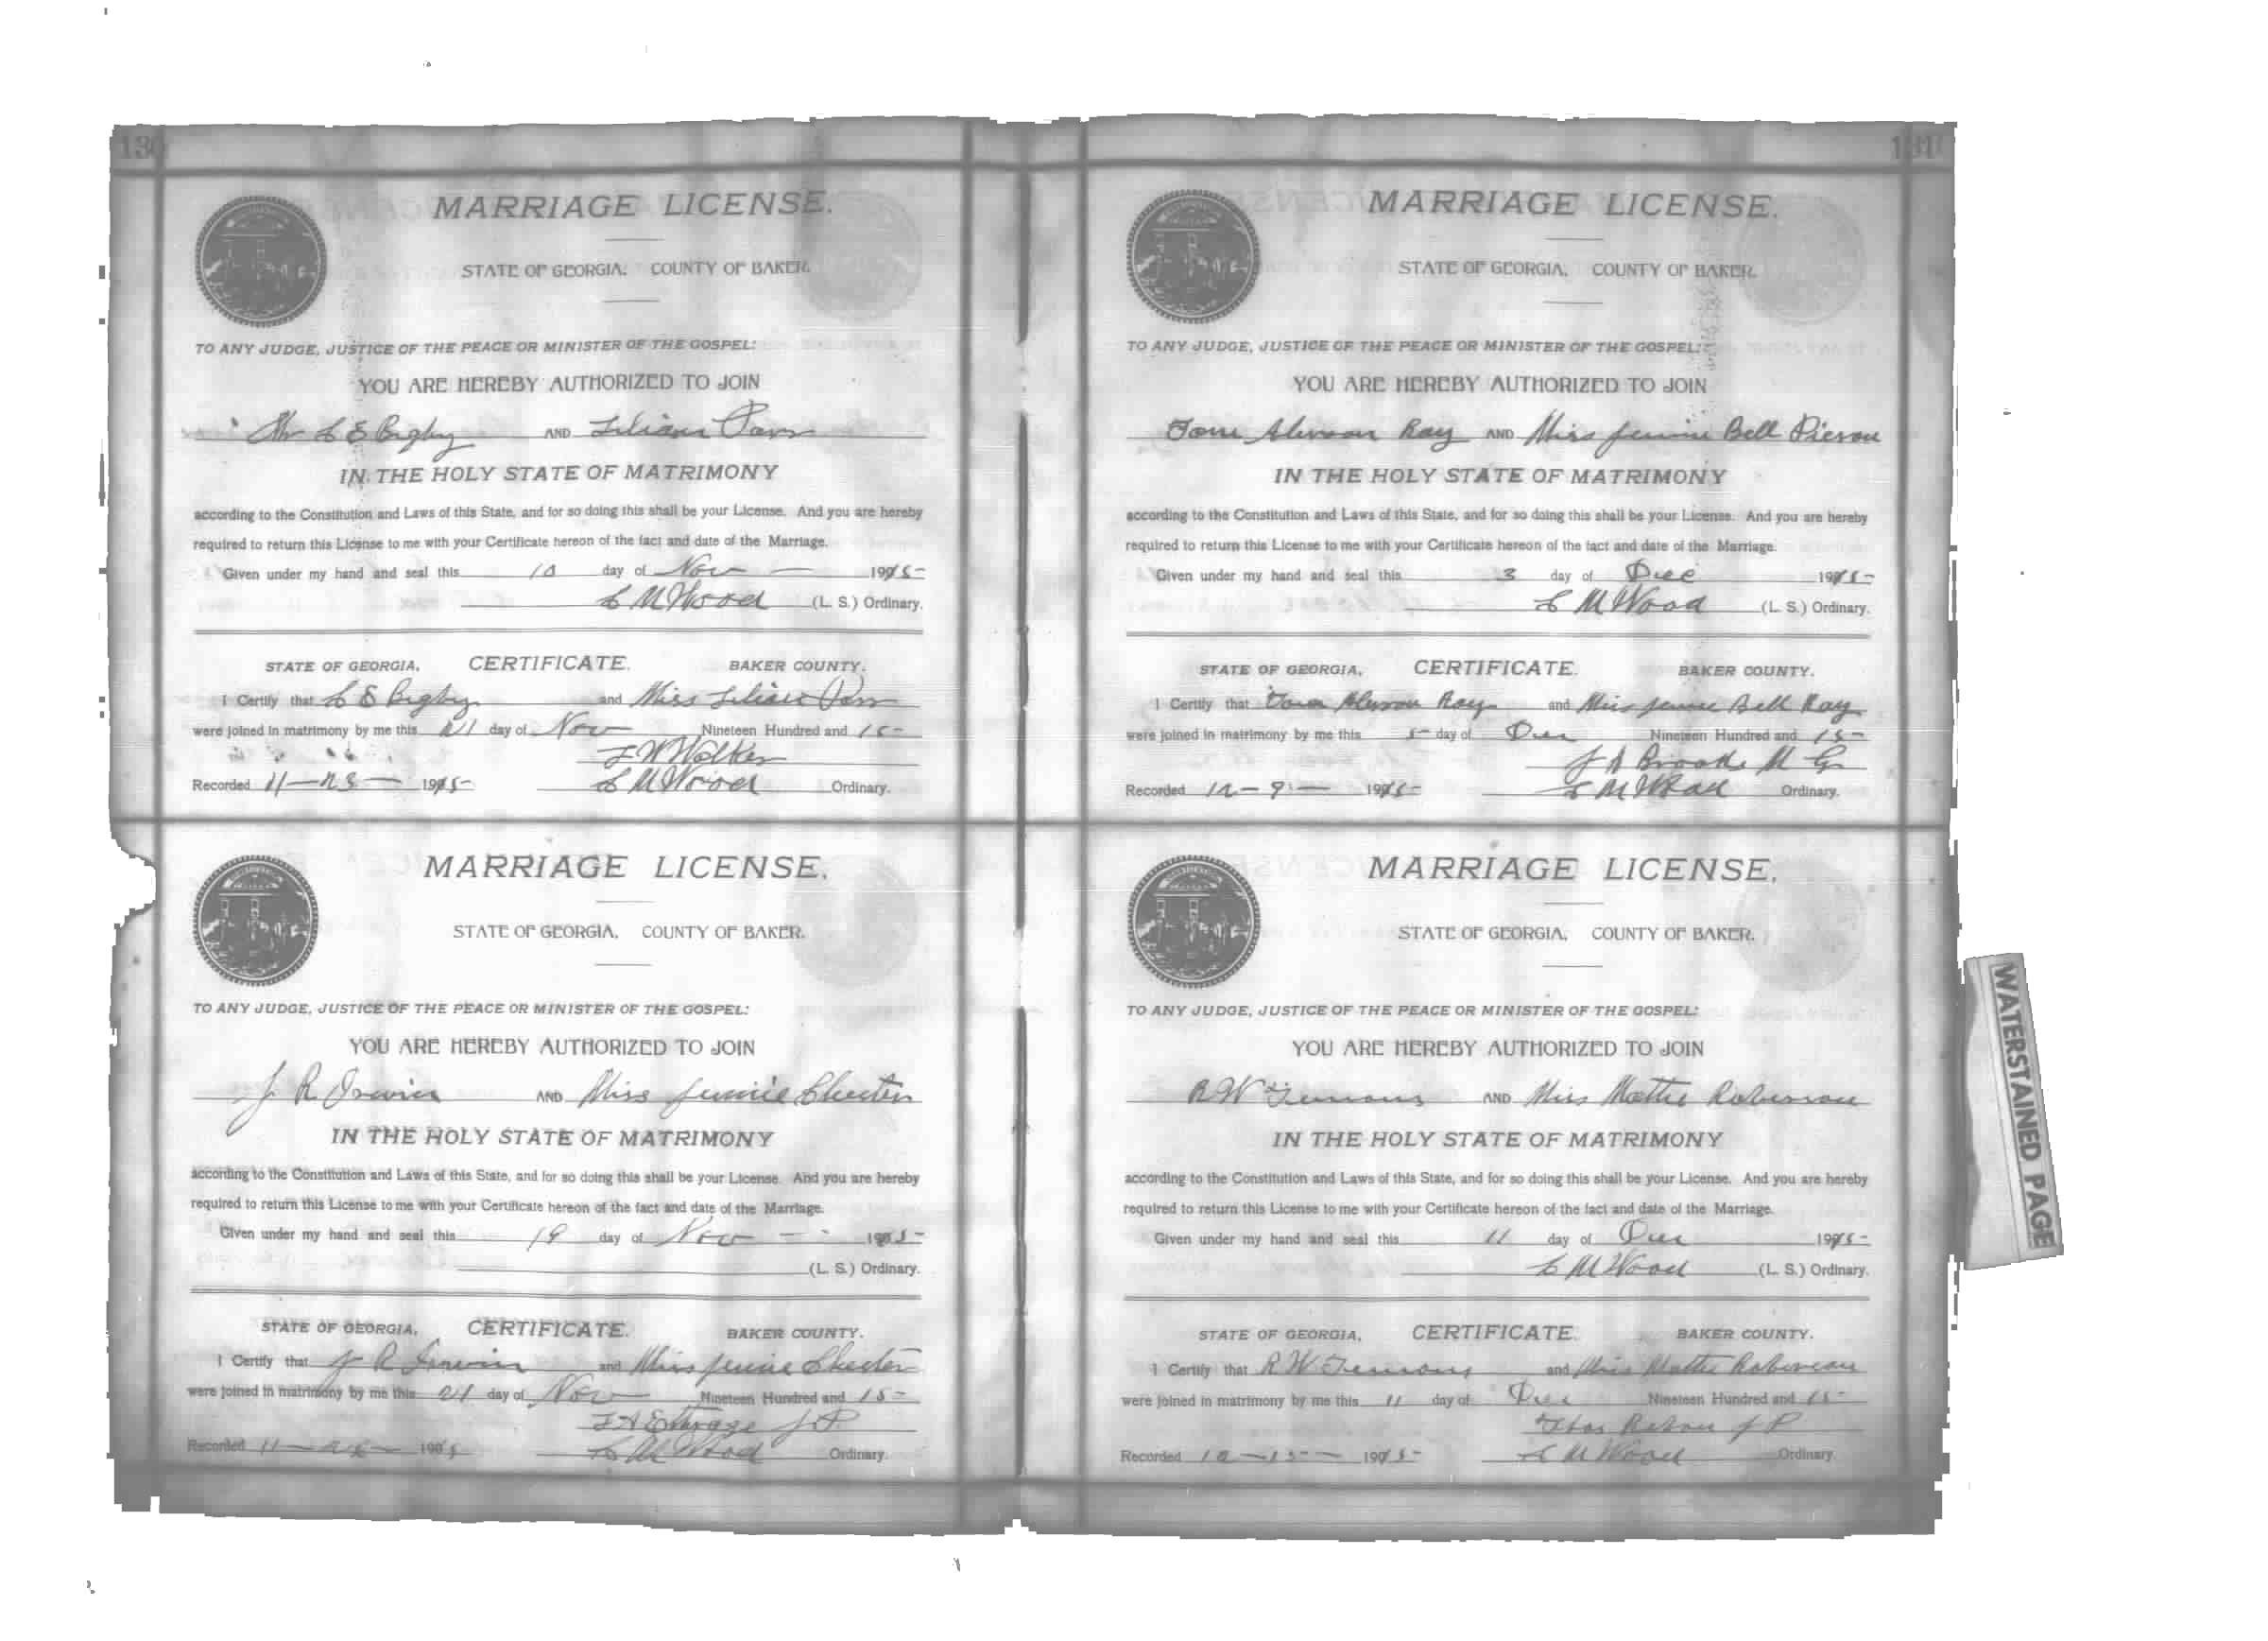 130
MARRIAGE LICENSE.
STATE OF GEORGIA. COUNTY OF BAKER.
TO ANY JUDGE, JUSTICE OF THE PEACE OR MINISTER OF THE GOSPEL:
YOU ARE HEREBY AUTHORIZED TO JOIN
Mr C E Bigby AND Lilian Parr
IN THE HOLY STATE OF MATRIMONY
according to the Constitution and Laws of this State, and for so doing this shall be your License. And you are hereby
required to return this License to me with your Certificate hereon of the fact and date of the Marriage.
Given under my hand and seal this day of Nov 1915
C M Wood (L. S.) Ordinary.
STATE OF GEORGIA, CERTIFICATE. BAKER COUNTY.
I Certify that C E Bigby and Miss Lilian Parr
were joined in matrimony by me this 21 day of Nov Nineteen Hundred and 15
Walker
Recorded 11-23- 1915 C M Wood Ordinary.
MARRIAGE LICENSE.
STATE OF GEORGIA. COUNTY OF BAKER.
TO ANY JUDGE, JUSTICE OF THE PEACE OR MINISTER OF THE GOSPEL:
YOU ARE HEREBY AUTHORIZED TO JOIN
J R Irwin AND Miss Jennie
IN THE HOLY STATE OF MATRIMONY
according to the Constitution and Laws of this State, and for so doing this shall be your License. And you are hereby
required to return this License to me with your Certificate hereon of the fact and date of the Marriage.
Given under my hand and seal this 19 day of Nov 1915
(L. S.) Ordinary.
STATE OF GEORGIA, CERTIFICATE. BAKER COUNTY.
I Certify that J R Irwin and Miss Jennie
were joined in matrimony by me this 21 day of Nov Nineteen Hundred and 15
J P
Recorded 11- 1915 C M Wood Ordinary.
131
MARRIAGE LICENSE.
STATE OF GEORGIA, COUNTY OF BAKER.
TO ANY JUDGE, JUSTICE OF THE PEACE OR MINISTER OF THE GOSPEL:
YOU ARE HEREBY AUTHORIZED TO JOIN
Ray AND Miss Jennie Bell Pierson
IN THE HOLY STATE OF MATRIMONY
according to the Constitution and Laws of this State, and for so doing this shall be your License. And you are hereby
required to return this License to me with your Certificate hereon of the fact and date of the Marriage.
Given under my hand and seal this 3 day of Dec 1915
C M Wood (L. S.) Ordinary.
STATE OF GEORGIA, CERTIFICATE. BAKER COUNTY.
I Certify that Ray and Miss Jennie Bell Ray
were joined in matrimony by me this 5 day of Dec Nineteen Hundred and 15
J A Brooks M G
Recorded 12-9- 1915 C M Wood Ordinary.
MARRIAGE LICENSE.
STATE OF GEORGIA, COUNTY OF BAKER.
TO ANY JUDGE, JUSTICE OF THE PEACE OR MINISTER OF THE GOSPEL:
YOU ARE HEREBY AUTHORIZED TO JOIN
R W AND Miss Mattie Roberson
IN THE HOLY STATE OF MATRIMONY
according to the Constitution and Laws of this State, and for so doing this shall be your License. And you are hereby
required to return this License to me with your Certificate hereon of the fact and date of the Marriage.
Given under my hand and seal this 11 day of Dec 1915
C M Wood (L. S.) Ordinary.
STATE OF GEORGIA, CERTIFICATE. BAKER COUNTY.
I Certify that R W and Miss Mattie Roberson
were joined in matrimony by me this 11 day of Dec Nineteen Hundred and 15
J P
Recorded 12-15- 1915 C M Wood Ordinary.
WATERSTAINED PAGE